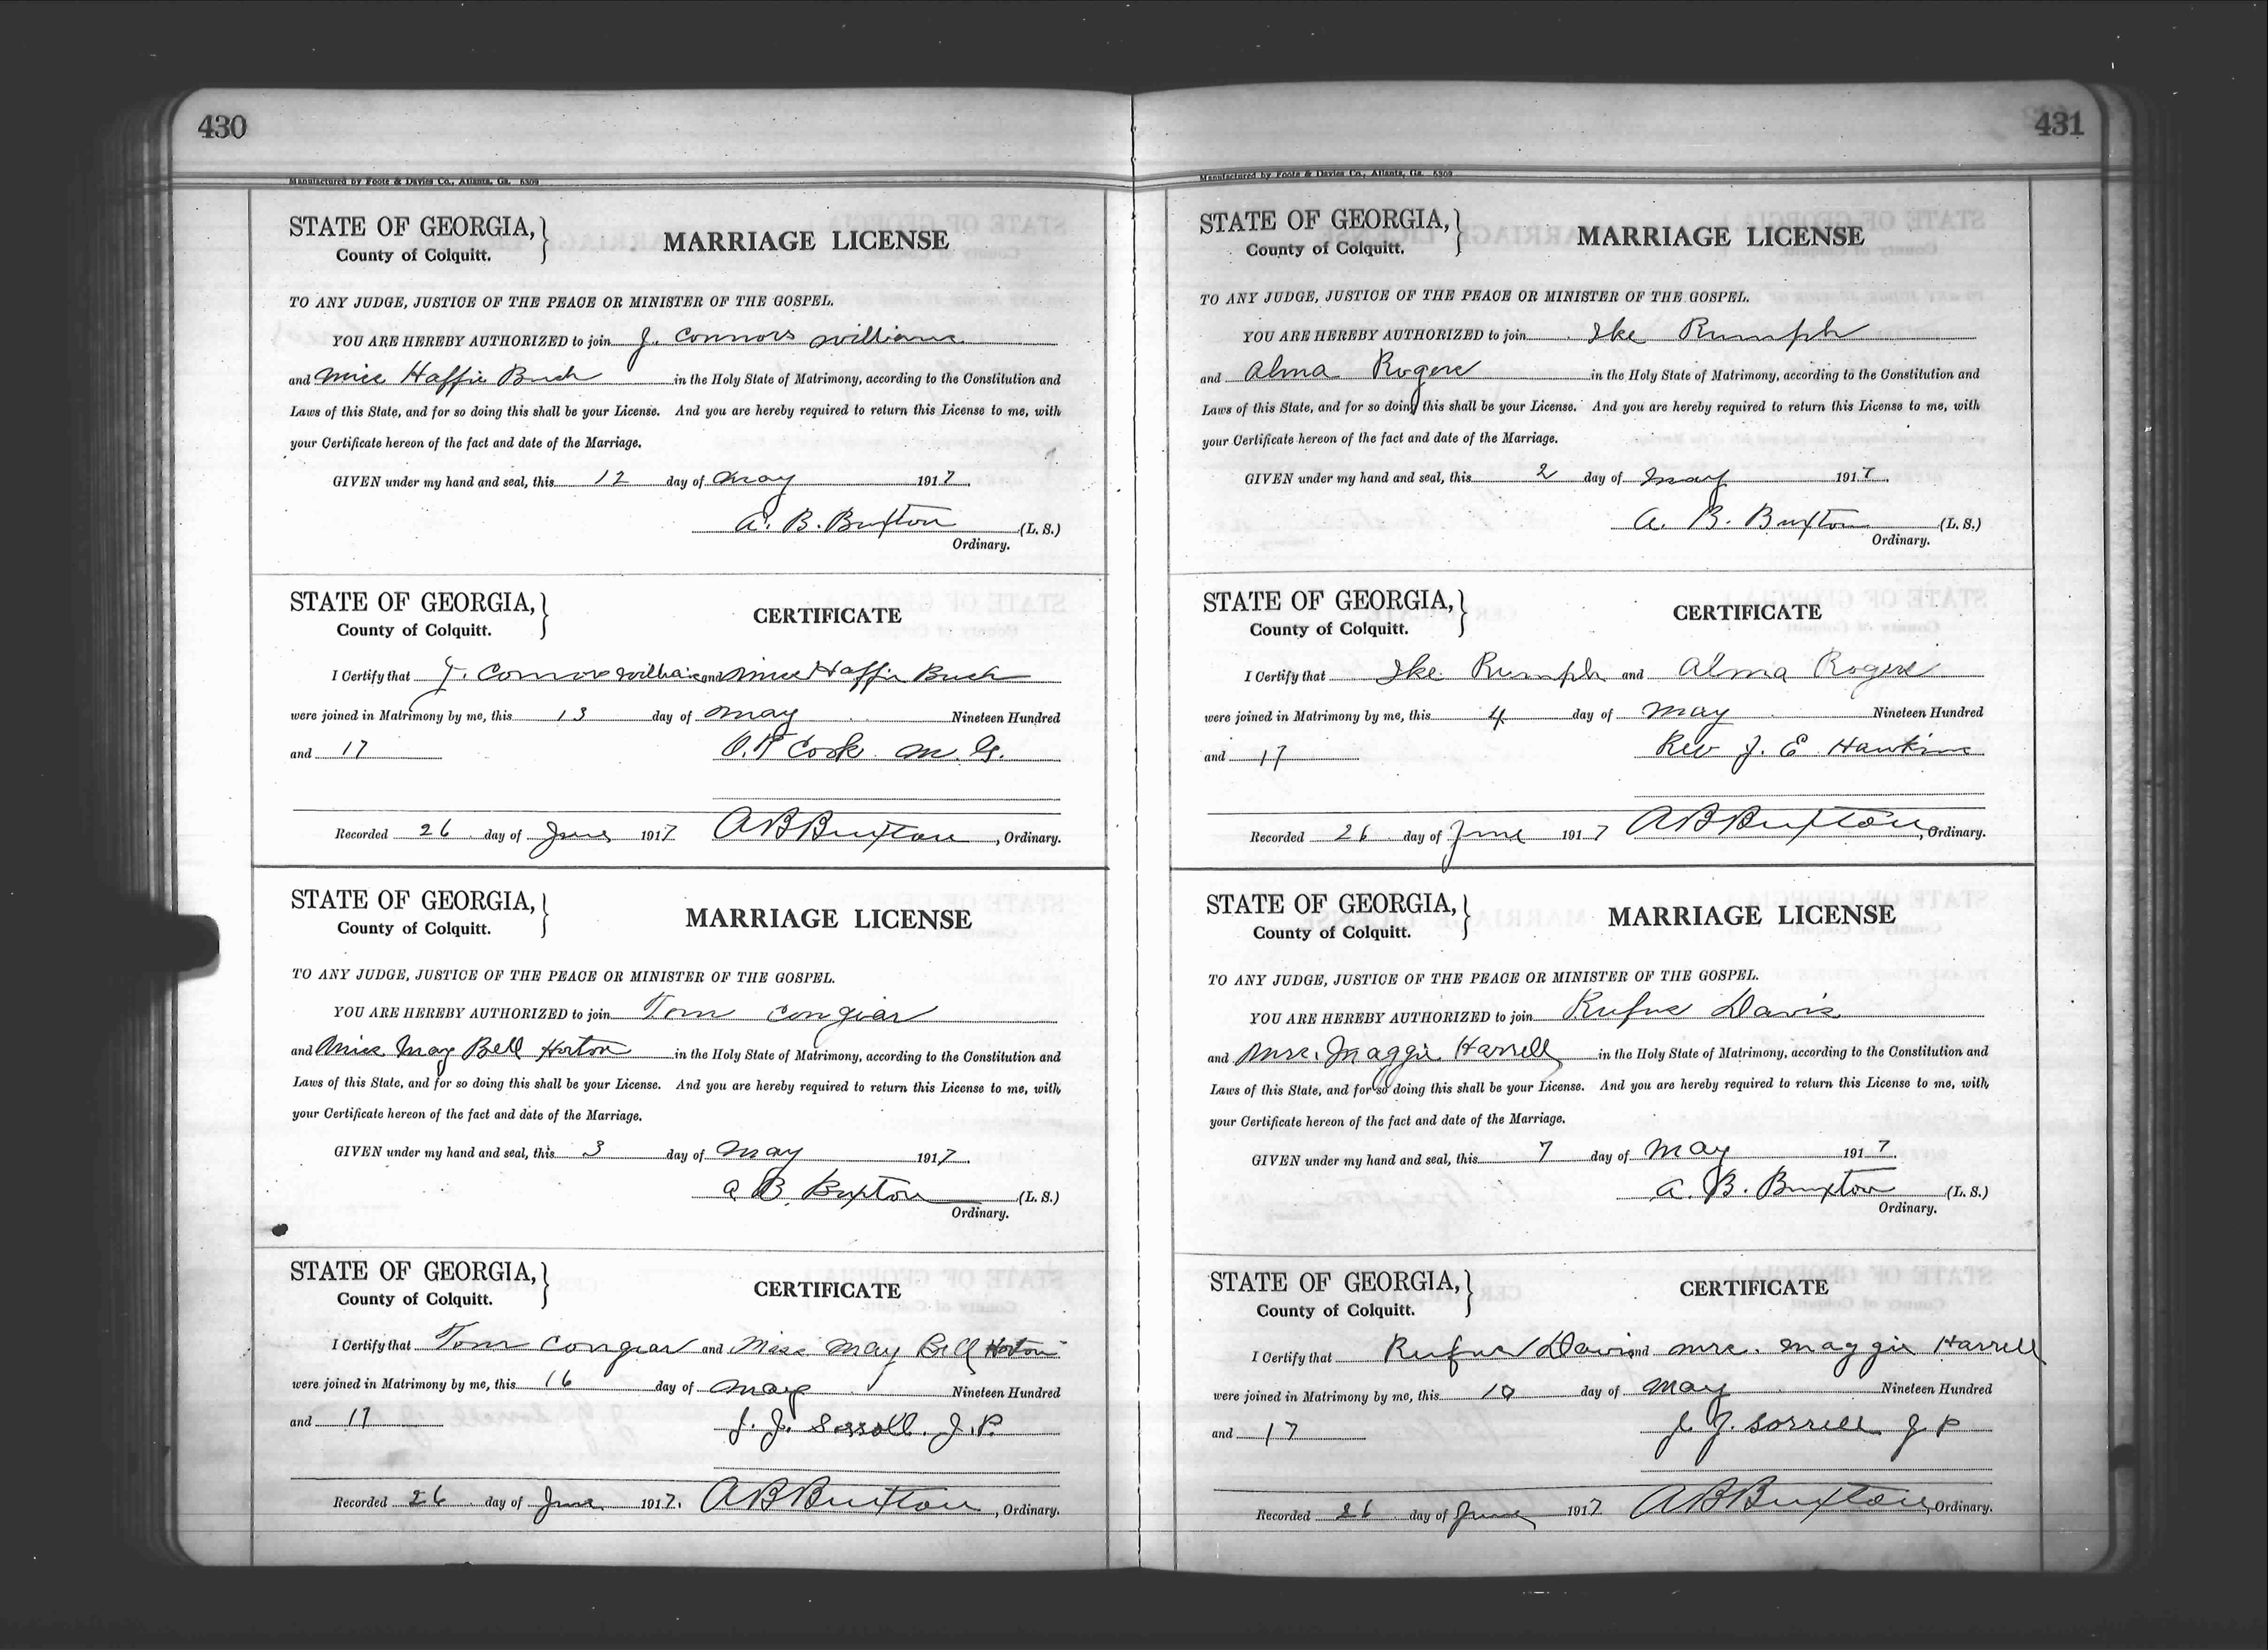 430
Manufactured by Foote & Davies Co., Atlanta, Ga. 6309
STATE OF GEORGIA,
County of Colquitt.
MARRIAGE LICENSE
TO ANY JUDGE, JUSTICE OF THE PEACE OR MINISTER OF THE GOSPEL.
YOU ARE HEREBY AUTHORIZED to join J. Connors Williams
and Miss Haffie Buch in the Holy State of Matrimony, according to the Constitution and
Laws of this State, and for so doing this shall be your License. And you are hereby required to return this License to me, with
your Certificate hereon of the fact and date of the Marriage.
GIVEN under my hand and seal, this 12 day of May 1917.
A. B. Buxton (L. S.)
Ordinary.
STATE OF GEORGIA,
County of Colquitt.
CERTIFICATE
I Certify that J. Connors Williams and Miss Haffie Buch
were joined in Matrimony by me, this 13 day of May Nineteen Hundred
and 17
Cook M. G.
Recorded 26 day of June 1917. A B Buxton, Ordinary.
STATE OF GEORGIA,
County of Colquitt.
MARRIAGE LICENSE
TO ANY JUDGE, JUSTICE OF THE PEACE OR MINISTER OF THE GOSPEL.
YOU ARE HEREBY AUTHORIZED to join Tom Congiar
and Miss May Bell Horton in the Holy State of Matrimony, according to the Constitution and
Laws of this State, and for so doing this shall be your License. And you are hereby required to return this License to me, with
your Certificate hereon of the fact and date of the Marriage.
GIVEN under my hand and seal, this 3 day of May 1917.
A B Buxton (L. S.)
Ordinary.
STATE OF GEORGIA,
County of Colquitt.
CERTIFICATE
I Certify that Tom Congiar and Miss May Bell Horton
were joined in Matrimony by me, this 16 day of May Nineteen Hundred
and 17
J. J. Sorrell. J. P.
Recorded 26 day of June 1917. A B Buxton, Ordinary.
431
Manufactured by Foote & Davies Co., Atlanta, Ga. 6309
STATE OF GEORGIA,
County of Colquitt.
MARRIAGE LICENSE
TO ANY JUDGE, JUSTICE OF THE PEACE OR MINISTER OF THE GOSPEL.
YOU ARE HEREBY AUTHORIZED to join Ike Rumph
and Alma Rogers in the Holy State of Matrimony, according to the Constitution and
Laws of this State, and for so doing this shall be your License. And you are hereby required to return this License to me, with
your Certificate hereon of the fact and date of the Marriage.
GIVEN under my hand and seal, this 2 day of May 1917.
A. B. Buxton (L. S.)
Ordinary.
STATE OF GEORGIA,
County of Colquitt.
CERTIFICATE
I Certify that Ike Rumph and Alma Rogers
were joined in Matrimony by me, this 4 day of May Nineteen Hundred
and 17
Rev J. E. Hawkins
Recorded 26 day of June 1917 A B Buxton, Ordinary.
STATE OF GEORGIA,
County of Colquitt.
MARRIAGE LICENSE
TO ANY JUDGE, JUSTICE OF THE PEACE OR MINISTER OF THE GOSPEL.
YOU ARE HEREBY AUTHORIZED to join Rufus Davis
and Mrs. Maggie Harrell in the Holy State of Matrimony, according to the Constitution and
Laws of this State, and for so doing this shall be your License. And you are hereby required to return this License to me, with
your Certificate hereon of the fact and date of the Marriage.
GIVEN under my hand and seal, this 7 day of May 1917.
A. B. Buxton (L. S.)
Ordinary.
STATE OF GEORGIA,
County of Colquitt.
CERTIFICATE
I Certify that Rufus Davis and Mrs. Maggie Harrell
were joined in Matrimony by me, this 10 day of May Nineteen Hundred
and 17
J. J. Sorrell J P
Recorded 26 day of June 1917 A B Buxton, Ordinary.